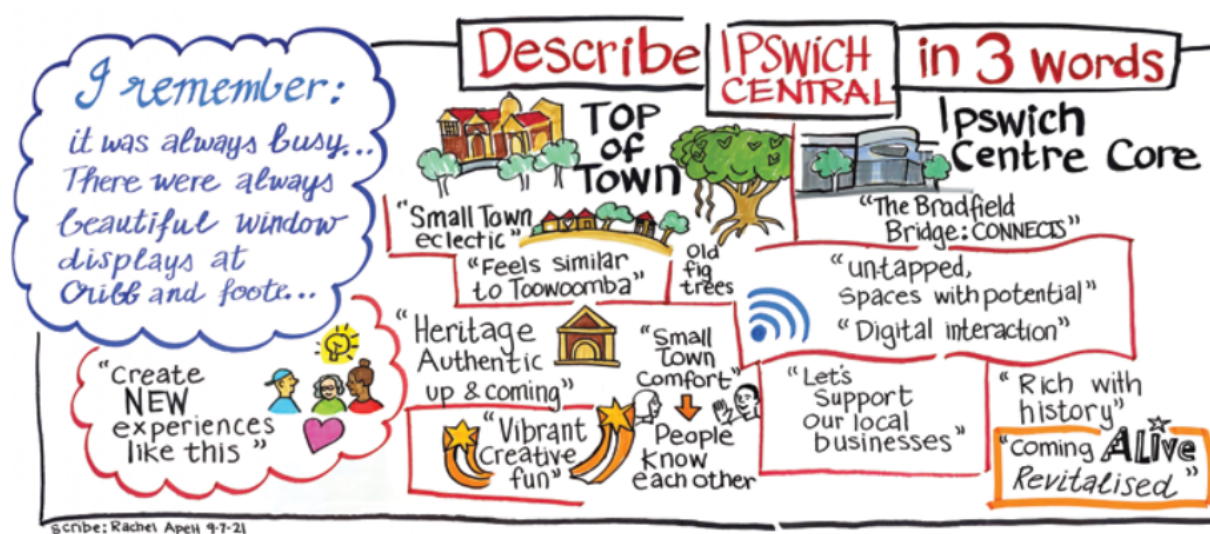 Describe IPSWICH CENTRAL in 3 words
I remember:
it was always busy...
There were always
beautiful window
displays at
Cribb and foote...
"Create
NEW
experiences
like this"
TOP
of
TOWN
"Small Town
eclectic"
"Feels similar
to Toowoomba"
Old
fig
trees
"Heritage
Authentic
up & coming"
"Small
Town
Comfort"
People
know
each other
"Vibrant
Creative
fun"
Ipswich
Centre Core
"The Bradfield
Bridge: CONNECTS"
"un-tapped,
spaces with potential"
"Digital interaction"
"Let's
Support
our local
businesses"
"Rich with
history"
"Coming ALive
Revitalised"
Scribe: Rachel Apelt 9-7-21